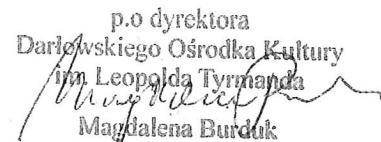 p.o dyrektora
Darłowskiego Ośrodka Kultury
im. Leopolda Tyrmanda
Magdalena Burduk